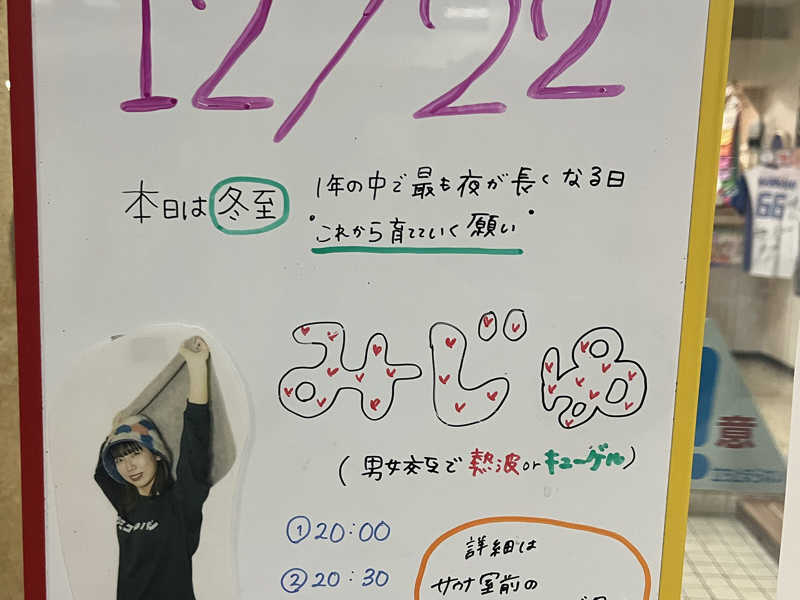 12/22
本日は 冬至
1年の中で最も夜が長くなる日
"これから育てていく願い"
みじゅ
(男女交互で熱波orキューゲル)
①20:00
②20:30
詳細は
サウナ室前の
66
意